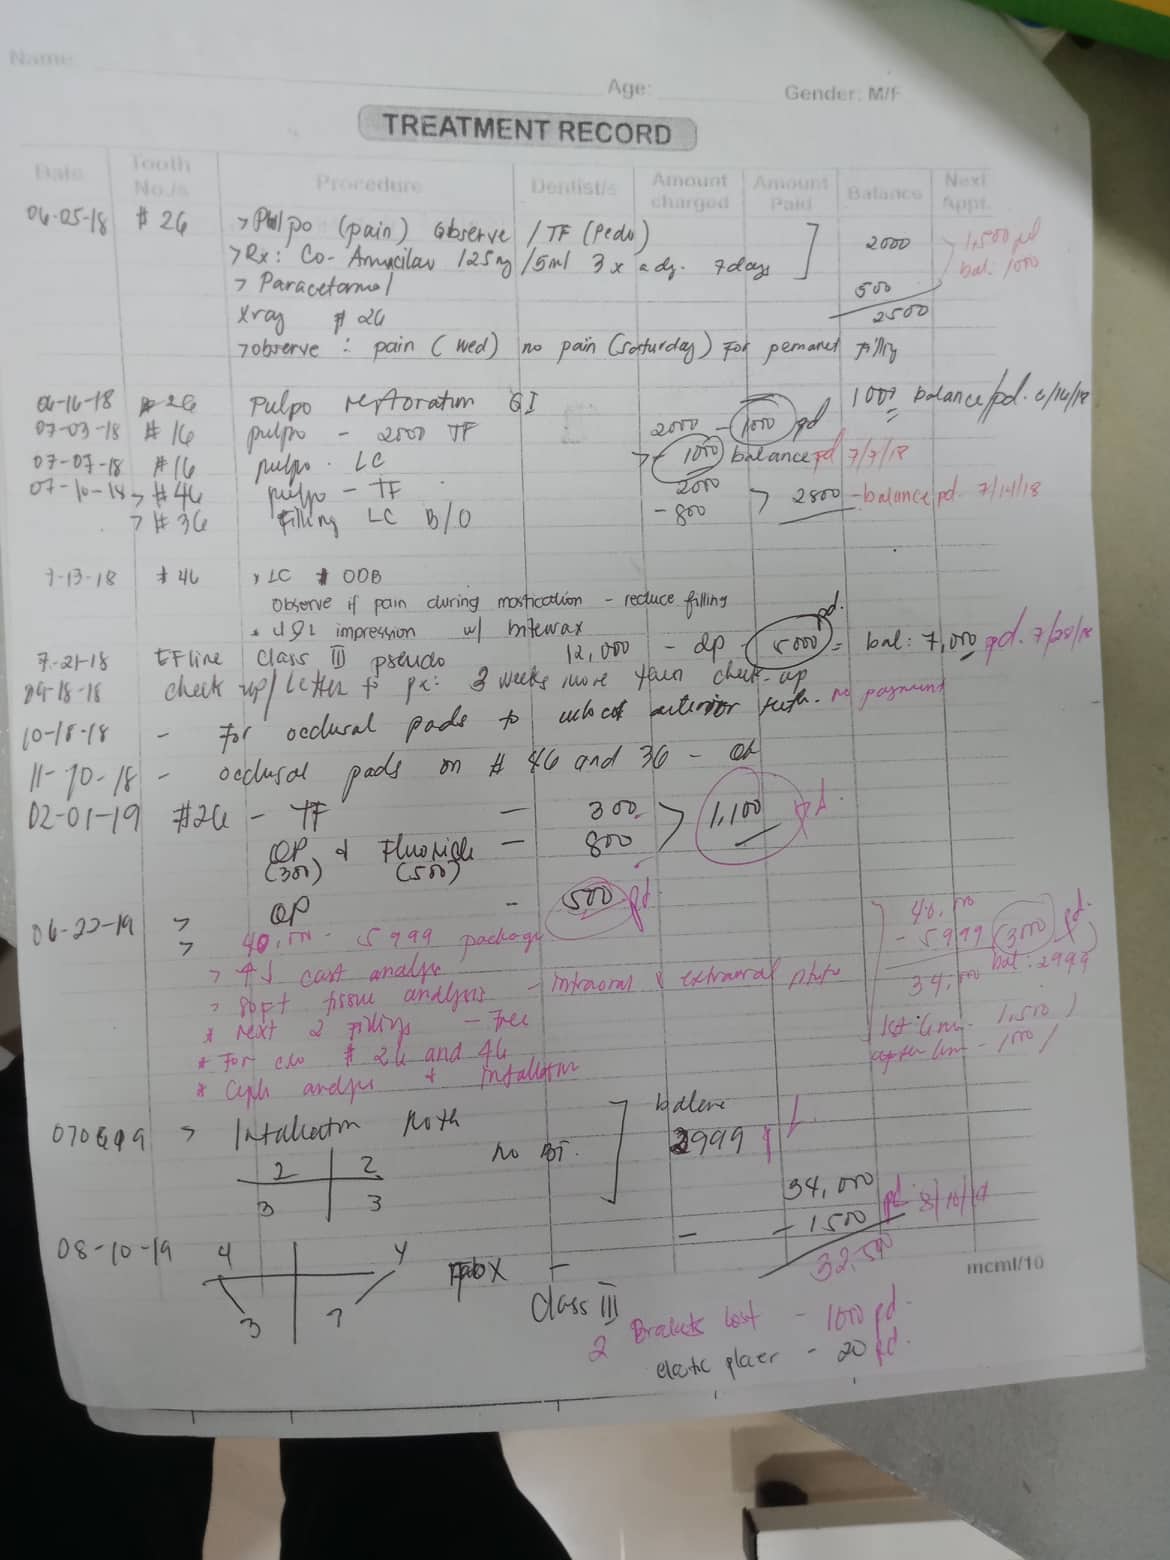 Name:
Age: Gender: M/F
TREATMENT RECORD
Date Tooth No./s Procedure Dentist/s Amount charged Amount Paid Balance Next Appt.
06-05-18 # 26 > Pulpo (pain) observe / TF (Pedo) 2000 1,500 pd
> Rx: Co- 125mg /5ml 3 x a dy. 7days bal: 1000
> Paracetamol 500
Xray # 26 2500
> observe : pain (wed) no pain (saturday) For Filling
06-16-18 # 26 Pulpo restoration GI 1000 balance/pd. 6/16/18
07-03-18 # 16 pulpo - 2000 TF 2000 - 1000 pd
07-07-18 # 16 pulpo - LC > - 1000 balance pd 7/7/18
07-10-18 > # 46 pulpo - TF 2000 > 2800 - balance pd. 7/14/18
> # 36 Filling LC B/O - 800
7-13-18 # 46 > LC # ODB
Observe if pain during mastication - reduce filling
impression w/ bitewax
7-21-18 EFline Class III pseudo 12,000 - dp - 5000 pd. = bal: 7,000 pd. 7/28/18
09-18-18 check up/ Letter to px: 3 weeks more then check-up
10-18-18 - For occlusal pads to anterior teeth. no payment
11-10-18 - occlusal pads on # 46 and 36 - ok
02-01-19 #26 - TF - 300 > 1,100 pd.
OP & Fluoride - 800
(300) (500)
06-22-19 > OP - 500 pd
> 40,000 - 5999 package 40,000
- 5999 (3000) pd.
> cast analysis 34,000 bal: 2999
> Soft tissue analysis - intraoral & extraoral photo
* Next 2 Fillings - Free 1st - 1,500
* For # 26 and 46 - 1000
* Ceph analysis + Installation
070619 > Installation Roth no BT. balance
2999
2 2
3 3
34,000
- 1500 pd. 8/10/19
32,500
08-10-19 4 4 - Class III
3 7
mcml/10
2 Brackets lost - 1000 pd.
elastic placer - 20 pd.